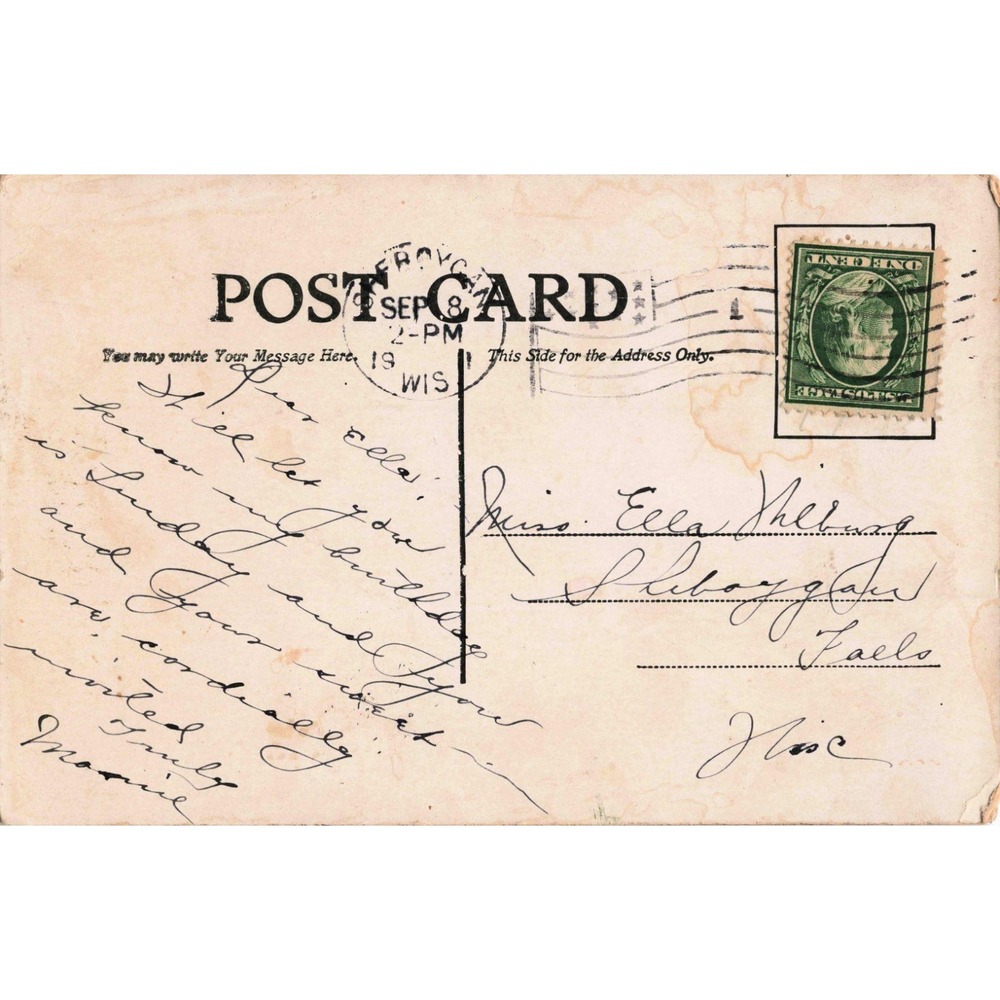 POST CARD
SHEBOYGAN
SEP 8
2-PM
19 1
WIS
1
ONE CENT
U.S. POSTAGE
You may write Your Message Here.
This Side for the Address Only.
Dear Ella,
I'll let you
know my birthday
is Sunday and you
and your sister
are cordially
invited
Truly
Miss. Ella
Sheboygan
Falls
Wisc